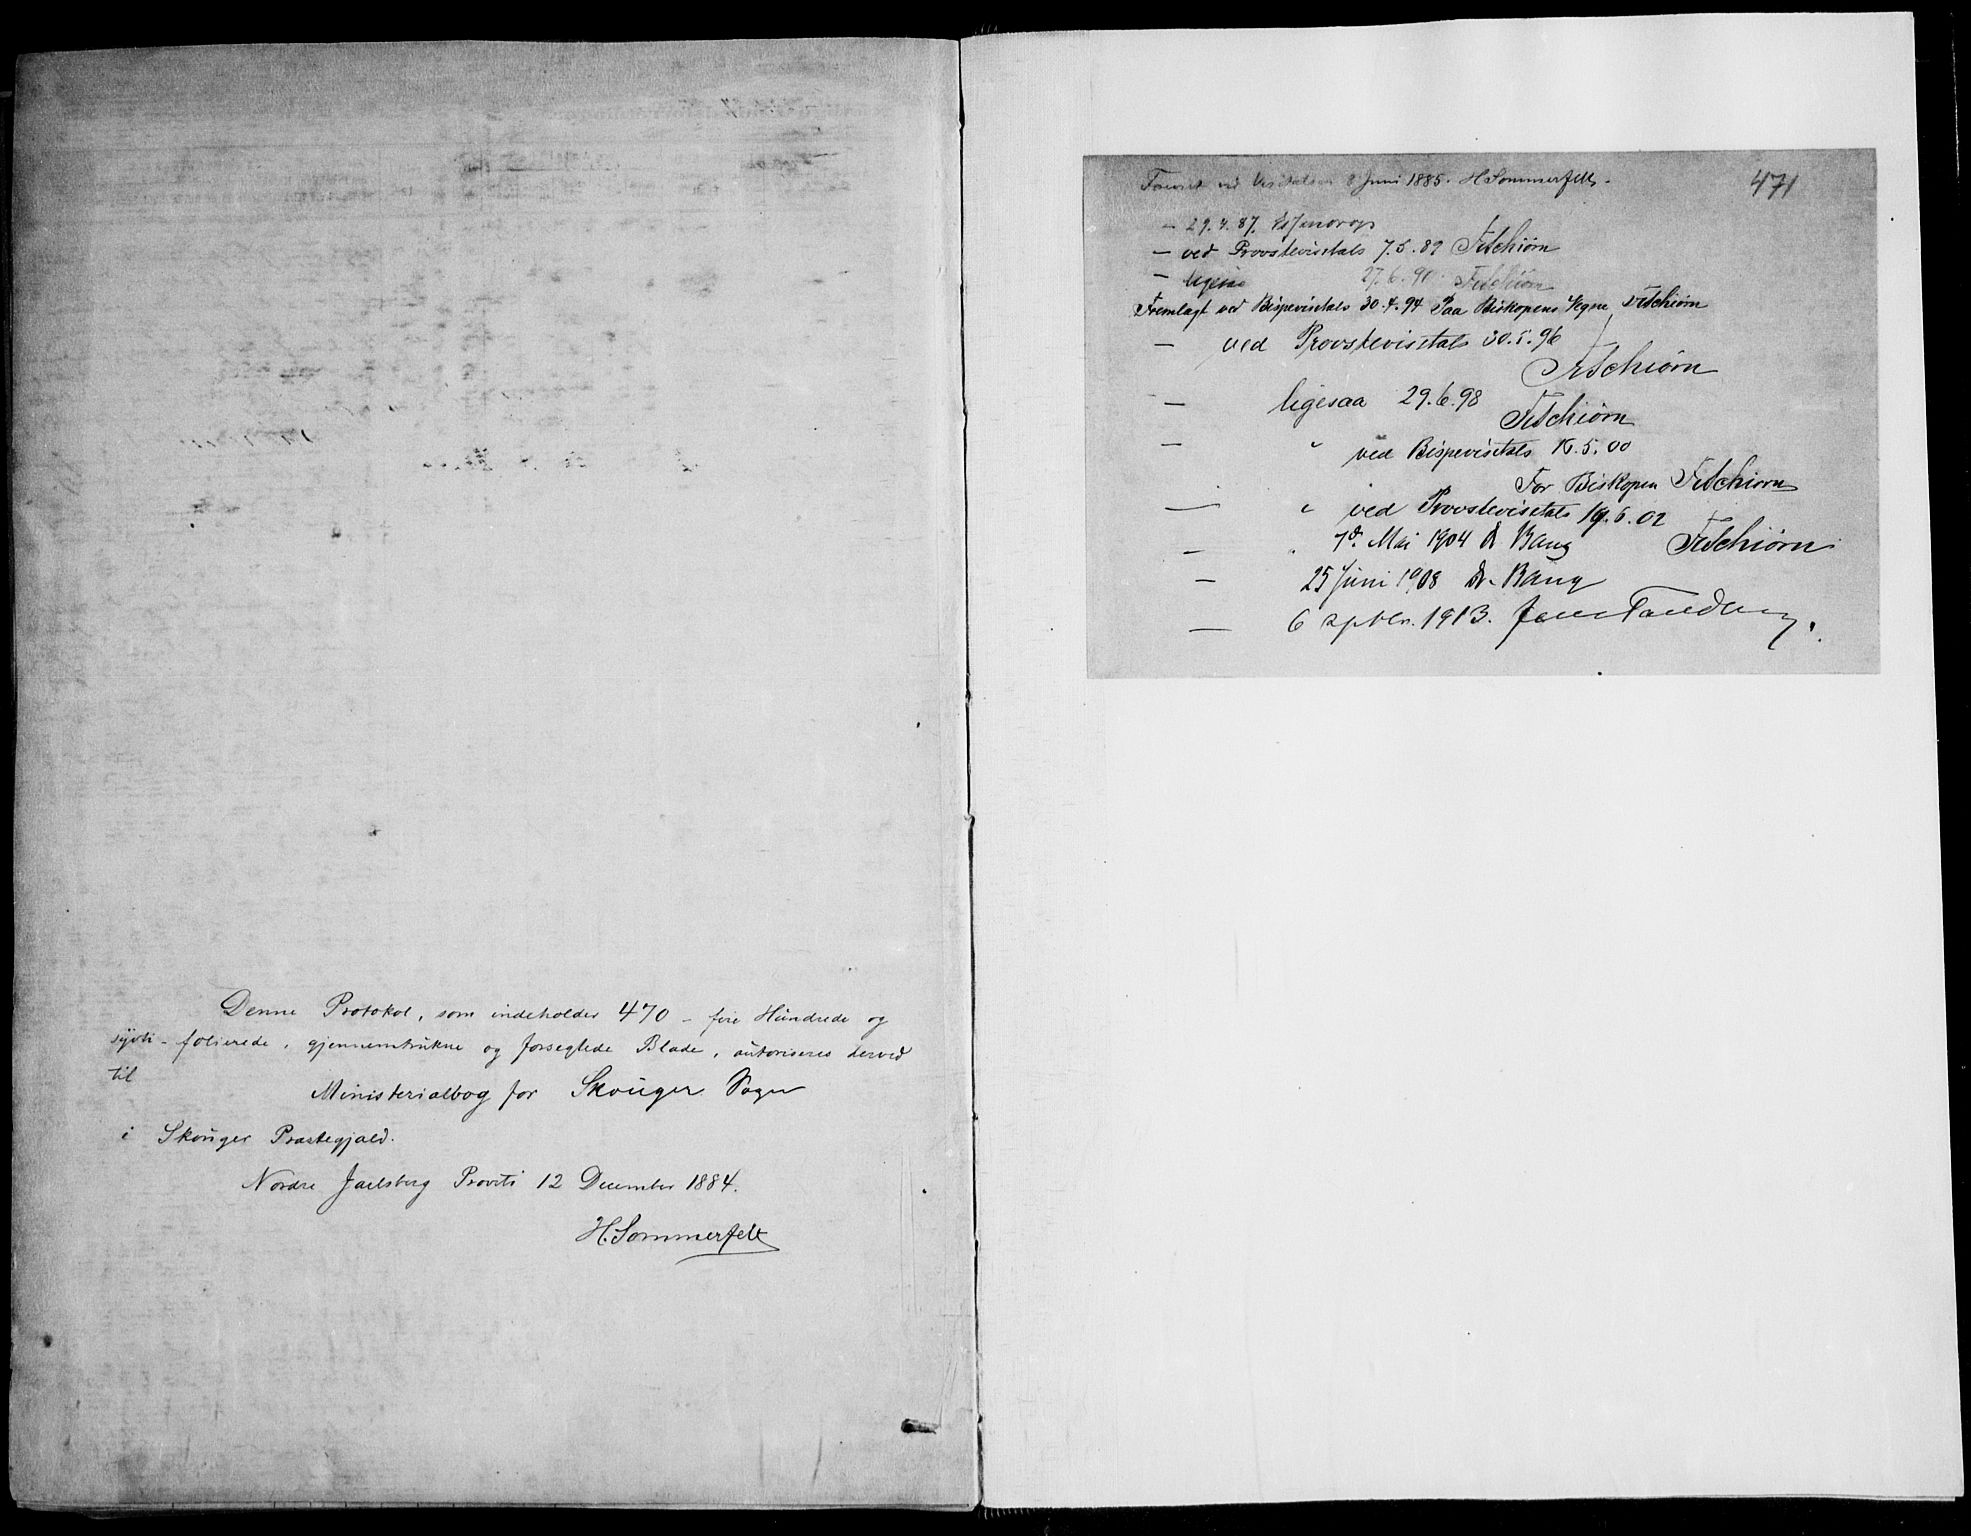 Denne Protokol, som indeholder 470 - fire Hundrede og
sytti - folierede, gjennemtrukne og forseglede Blade, autoriseres herved
til
Ministerialbog for Skouger Sogn
i Skouger Præstegjæld.
Nordre Jarlsberg Provsti 12 December 1884.
H. Sommerfelt
471
Foreviist ved Visitatsen 8 Juni 1885. H Sommerfelt.
— 29.4.87. Essendrop
— ved Provstevisitats 7.5.89 FTschiørn
— ligesaa 27.6.91 FTschiørn
Fremlagt ved Bispevisitats 30.4.94 Paa Biskopens Vegne FTschiørn
— ved Provstevisitats 30.5.96
FTschiørn
— ligesaa 29.6.98
FTschiørn
— " ved Bispevisitats 16.5.00
For Biskopen FTschiørn
— " ved Provstevisitats 19.6.02
FTschiørn
— " 7de Mai 1904 Dr Bang
— 25 Juni 1908 Dr. Bang
— 6 sptbr. 1913. Jens Tandberg.